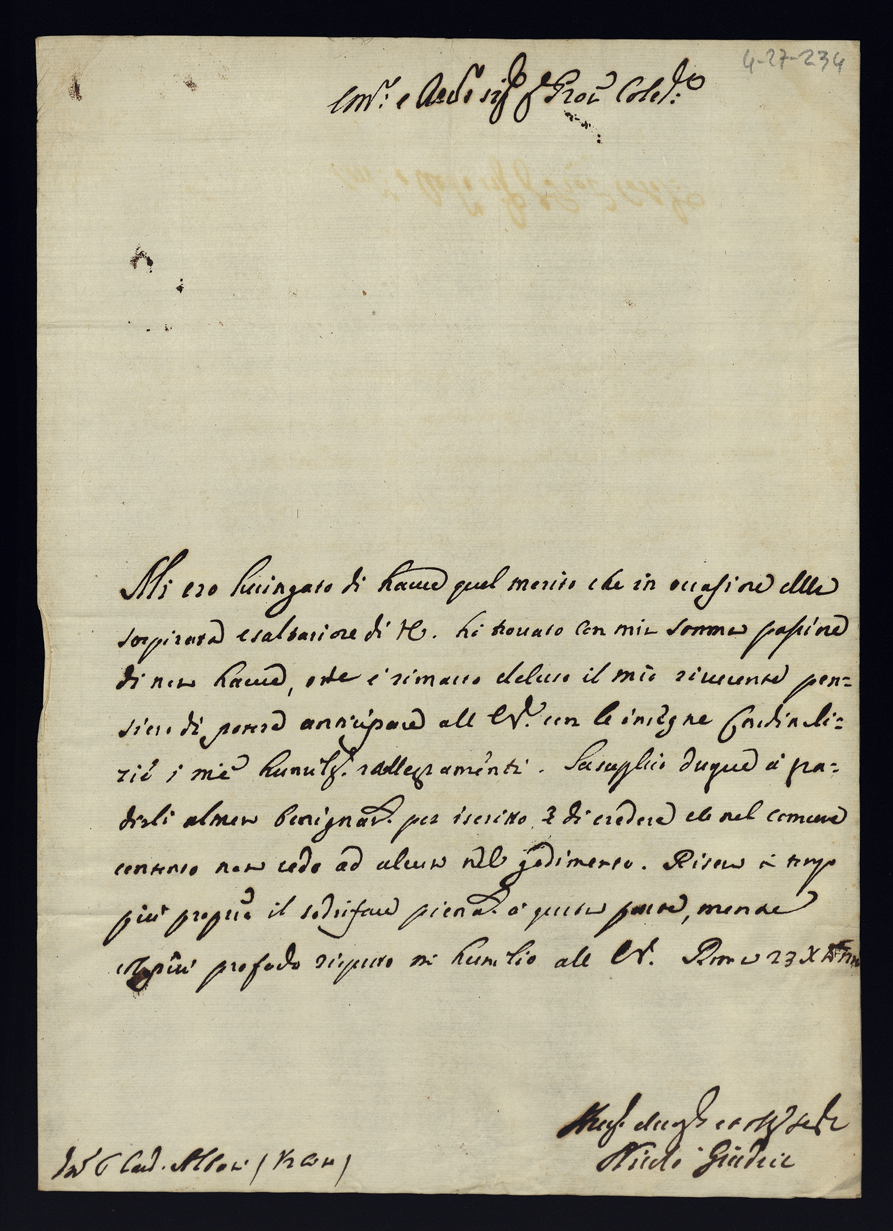 4-27-234
Em.mo e Rev.mo Sig.r Sig.r P.ron Col.mo
Mi ero lusingato di havere quel merito che in occasione della
sospirata esaltatione di V.E. hò trovato con mia somma passione
di non havere, onde è rimasto deluso il mio riverente pen=
siero di potere anticipare all' E.V. con le insegne Cardinali=
tie i miei humiliss.mi rallegramenti. La supplico dunque à gra=
dirli almeno benignam.te per iscritto, e di credere che nel comune
contento non cedo ad alcuno nel godimento. Riservo à tempo
più proprio il sodisfare pienam.te à questa parte, mentre
col più profondo rispetto mi humilio all' E.V. Roma 23 Xbre
Nicolò Giudice
Sig.r Card. Albani